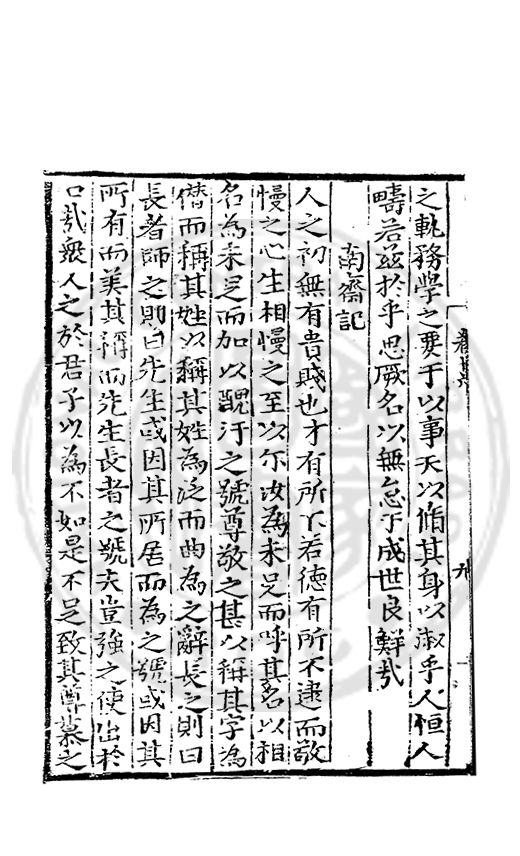 之軌務學之要于以事天以脩其身以淑乎人恒人
疇若茲於乎思厥名以無忘于成世良鮮哉
南齋記
人之初無有貴賤也才有所不若徳有所不逮而敬
慢之心生相慢之至以尔汝為未足而呼其名以相
名為未足而加以醜汙之號尊敬之甚以稱其字為
僭而稱其姓以稱其姓為泛而曲為之辭長之則曰
長者師之則曰先生或因其所居而為之號或因其
所有而美其稱而先生長者之號夫豈強之使出於
口哉衆人之於君子以為不如是不足致其尊慕之
卷
九